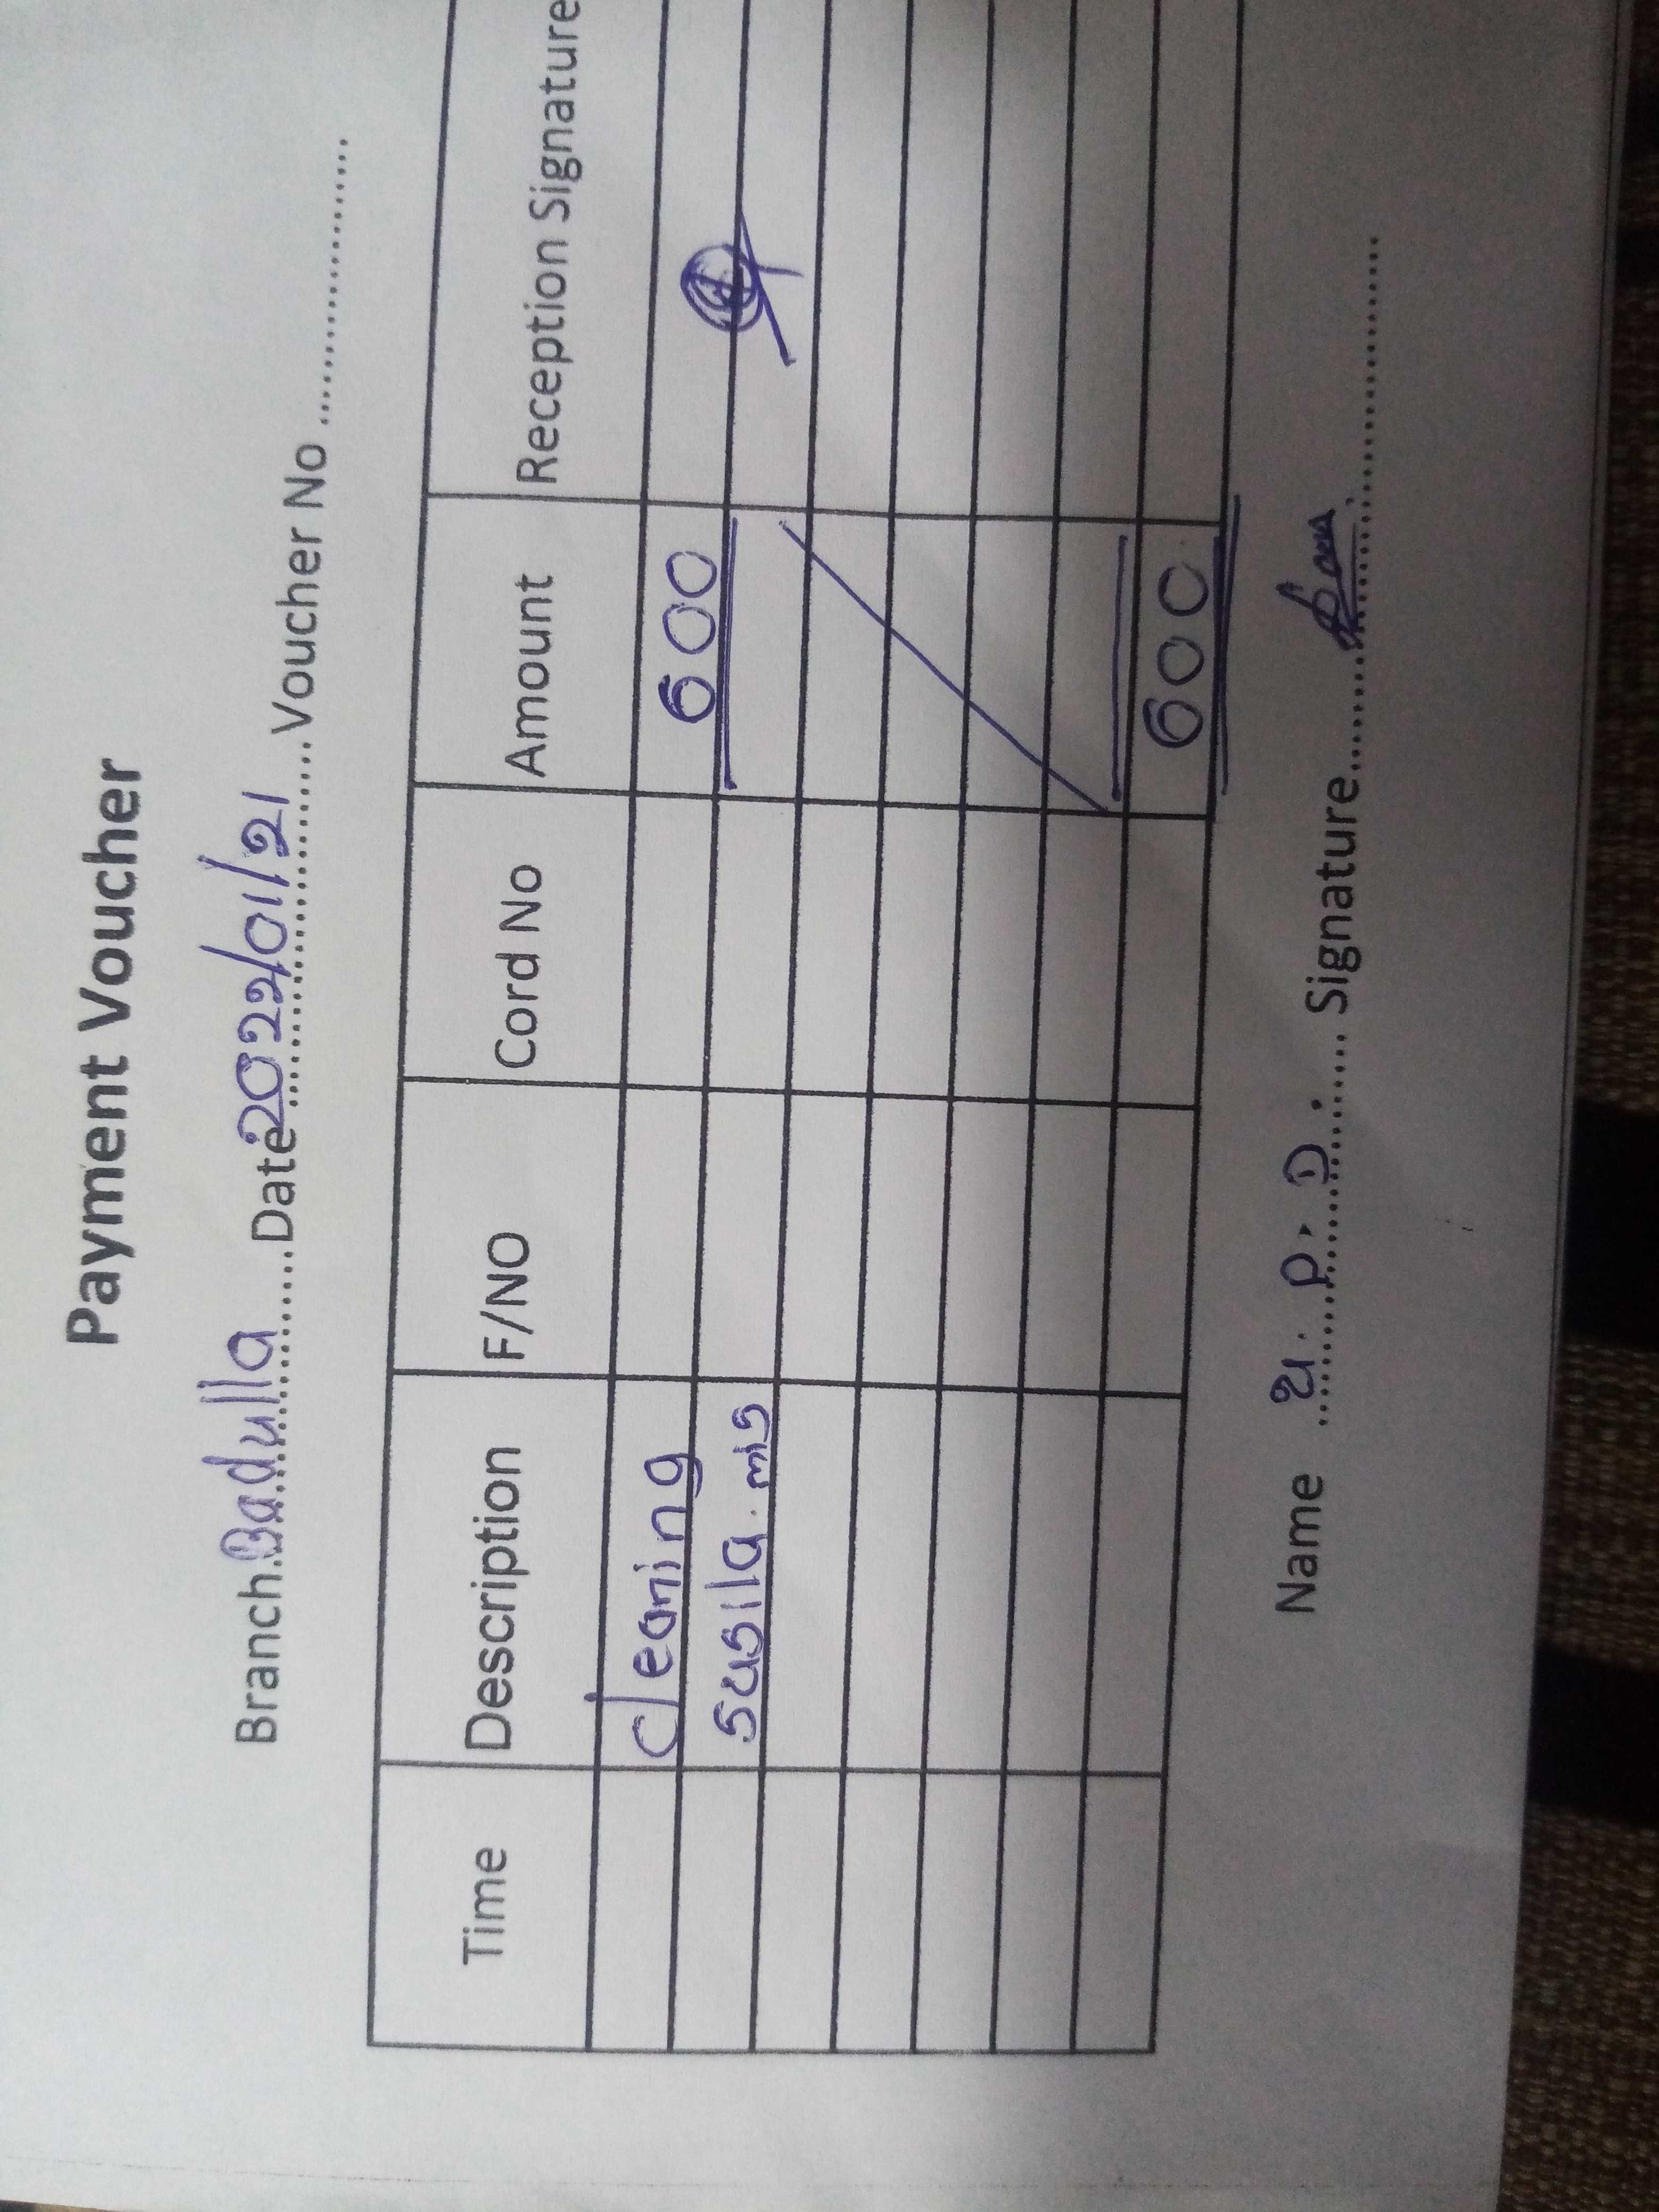 Payment Voucher
Branch Badulla Date 2022/01/21 Voucher No
Time Description F/NO Cord No Amount Reception Signature
Cleaning 600
susila. mis
600
Name Signature